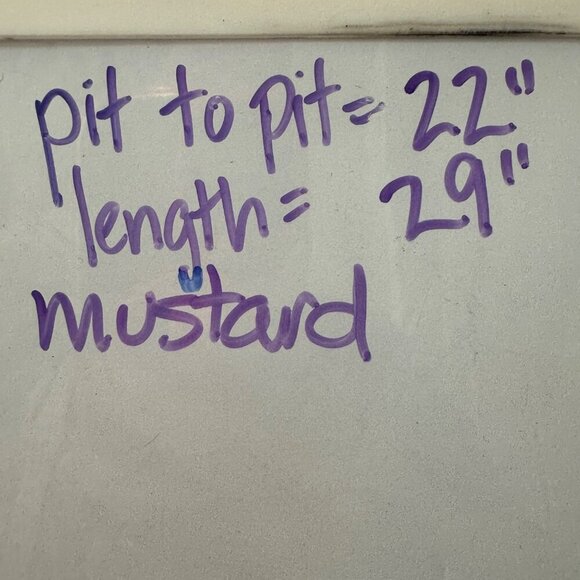 pit to pit= 22"
length= 29"
mustard